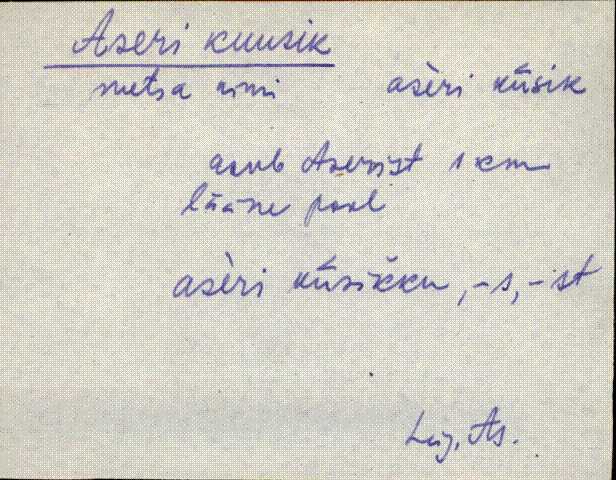 Aseri kuusik
metsa nimi asèri kūsik
asub Aserist 1 km
lääne pool
asèri kūsikku, -s, -st
Lüg. As.